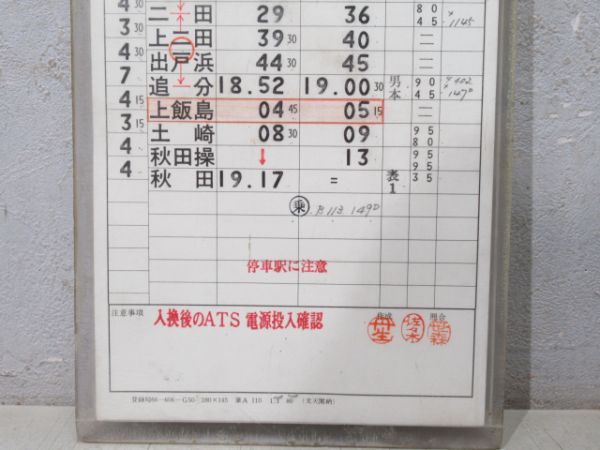 4 30 二 田 29 36 80 45 1145
3 30 上二田 39 30 40 二
4 出戸浜 44 30 45 二
7 追分 18.52 19.00 30 男本 90 45
4 15 上飯島 04 45 05 15 二
3 15 土崎 08 30 09 95 80
4 秋田操 ↓ 13 95 95
4 秋田 19.17 = 表1 35
乗
停車駅に注意
注意事項 入換後のATS電源投入確認 作成 丹生 佐々木 照合